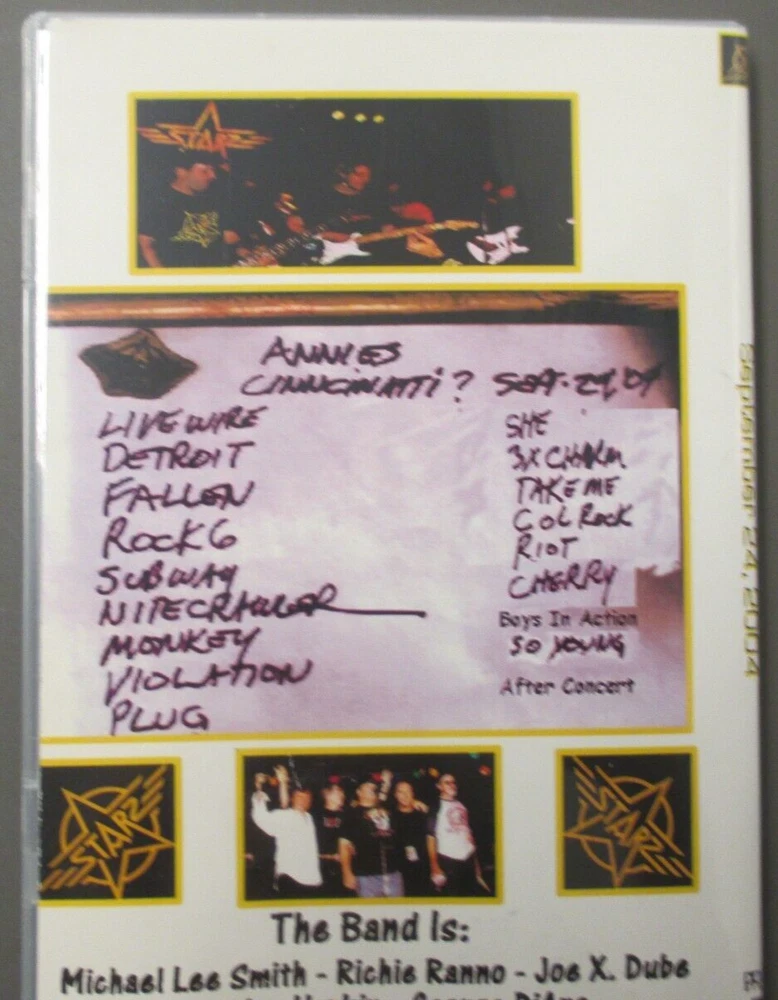 STARZ
ANNIES
CINNCINATTI? SEPT. 24, 04
LIVEWIRE
DETROIT
FALLEN
ROCK 6
SUBWAY
NITECRAWLER
MONKEY
VIOLATION
PLUG
SHE
3X CHARM
TAKE ME
COL ROCK
RIOT
CHERRY
Boys In Action
SO YOUNG
After Concert
STARZ
STARZ
The Band Is:
Michael Lee Smith - Richie Ranno - Joe X. Dube
September 24, 2004